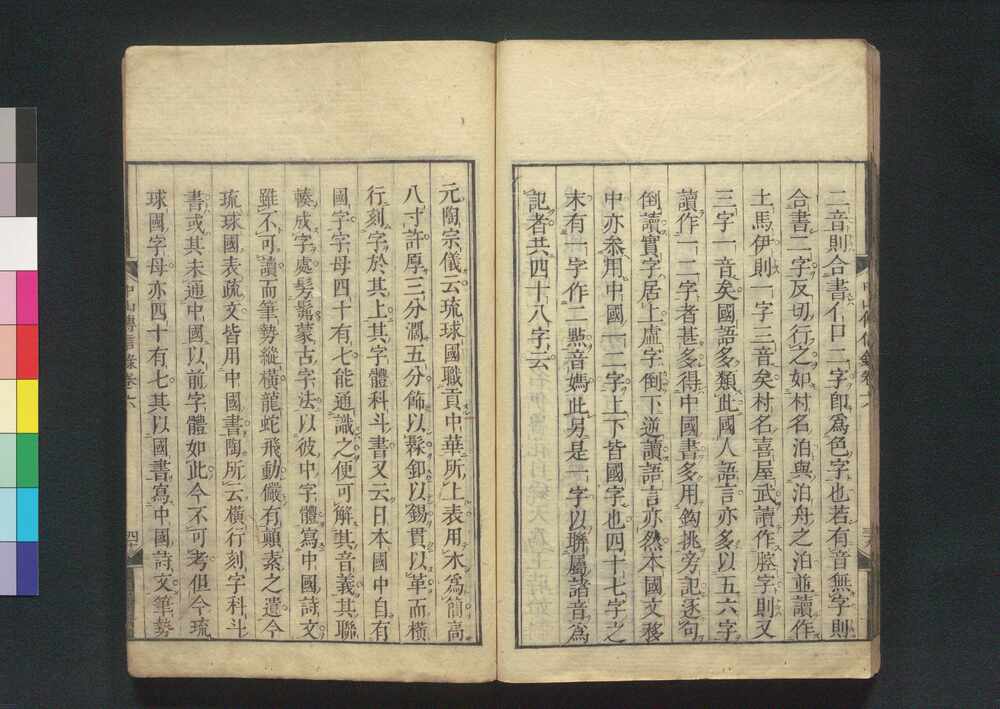 二音則合書イロ二字即爲色字也若有音無字則
合書二字反切行之如村名泊與泊舟之泊並讀作
土馬伊則一字三音矣村名喜屋武讀作腔字則又
三字一音矣國語多類此國人語言亦多以五六字
讀作一二字者甚多得中國書多用鈎挑旁記逐句
倒讀實字居上虛字倒下逆讀語言亦然本國文移
中亦參用中國一二字上下皆國字也四十七字之
末有一字作二㸃音媽此另是一字以聯屬諸音爲
記者共四十八字云
元陶宗儀云琉球國職貢中華所上表用木爲簡高
八寸許厚三分濶五分飾以髹釦以錫貫以革而橫
行刻字於其上其字體科斗書又云日本國中自有
國字字母四十有七能通識之便可解其音義其聯
輳成字處髣髴蒙古字法以彼中字體寫中國詩文
雖不可讀而筆勢縱橫龍蛇飛動儼有顛素之遺今
琉球國表疏文皆用中國書陶所云橫行刻字科斗
書或其未通中國以前字體如此今不可考但今琉
球國字母亦四十有七其以國書寫中國詩文筆勢
中山傳信錄卷六
四十